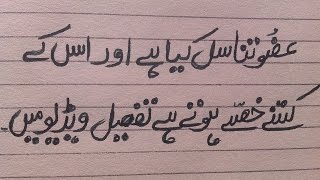 عضُو تناسل کیا ہے اور اس کے
کتنے حصّے ہوتے ہیے تفصیل ویڈیو میں۔